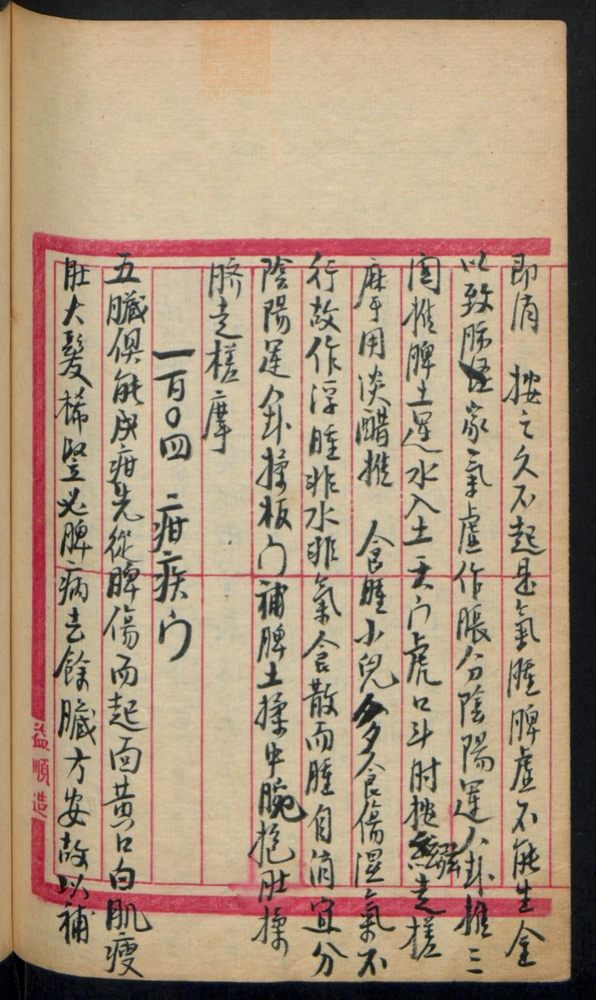 即消 按之久不起是氣腫脾虛不能生金
以致肺家氣虛作脹分陰陽運八卦推三
関推脾土運水入土天门虎口斗肘 走搓
摩再用淡醋推 食腫小兒多食傷湿氣不
行故作浮腫非水非氣食散而腫自消宜分
陰陽運八卦揉板门補脾土揉中腕 肚揉
臍走搓摩
一百〇四 疳疾门
五臟俱能成疳先從脾傷而起面黄口白肌瘦
肚大髮稀竪必脾病去餘臟方安故以補
益順造